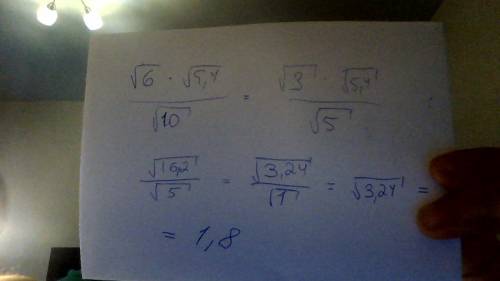 √6 · √5,4 / √10 = √3 · √5,4 / √5 :
√16,2 / √5 = √3,24 / √1 = √3,24 =
= 1,8